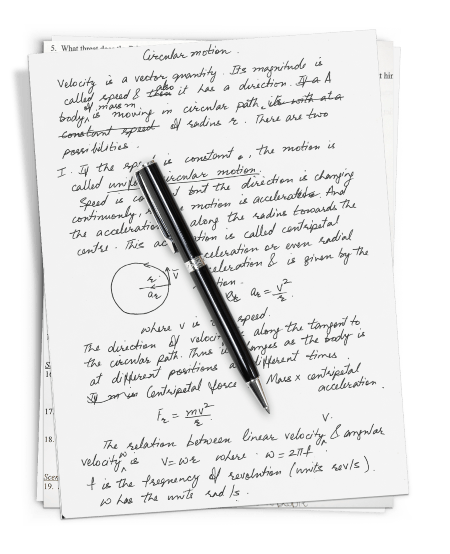 5. What threat does the
Circular motion.
Velocity is a vector quantity. Its magnitude is
called speed & also it has a direction. A
body of mass m is moving in circular path,
of radius r. There are two
possibilities.
I. If the is constant, the motion is
called circular motion.
Speed is but the direction is changing
continuously, motion is accelerated. And
the acceleration along the radius towards the
centre. This is called centripetal
acceleration or even radial
acceleration & is given by the
r v̄
aᵣ
aᵣ = v²/r
where v is speed.
The direction of along the tangent to
the circular path. Thus as the body is
at different positions different times.
Centripetal force Mass × centripetal
acceleration.
Fᵣ = mv²/r
The relation between linear velocity v & angular
velocity w is v = wr where w = 2πf
f is the frequency of revolution (units rev/s).
w has the units rad/s.
17.
18.
19.